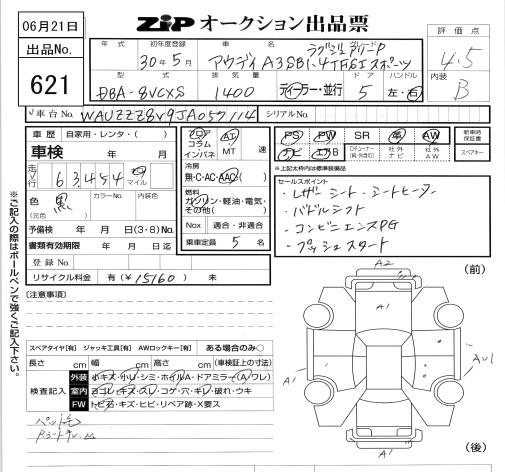 06月21日
ZiP オークション出品票
出品No.
621
年式 初年度登録 車名 グレード 評価点
30年5月 アウディ A3SB1.4TFSIスポーツ 4.5
型式 排気量 ドア ハンドル 内装
DBA-8VCXS 1400 ディーラー・並行 5 左・右 B
車台No. WAUZZZ8V9JA057114 シリアルNo.
車歴 自家用・レンタ・( )
車検 年 月
走行 63,454 キロ マイル
色 黒 カラーNo. 内装色
(元色)
予備検 年 月 日(3・8)No.
書類有効期限 年 月 日迄
登録No.
リサイクル料金 有(¥15160) 未
フロア AT
コラム
インパネ MT 速
冷房
無・C・AC・AAC
燃料
ガソリン・軽油・電気・
その他( )
Nox 適合・非適合
乗車定員 5 名
PS PW SR 革 AW
ナビ エアB
新車時保証書
スペアキー
※上記太枠内は標準装備品
セールスポイント
・レザーシート・シートヒーター
・パドルシフト
・コンビニエンスPG
・プッシュスタート
※ご記入の際はボールペンで強くご記入下さい。
(注意事項)
スペアタイヤ[有] ジャッキ工具[有] AWロックキー[有] ある場合のみ○
長さ cm 幅 cm 高さ cm (車検証上の寸法)
検査記入
外装 小キズ・小U・シミ・ホイルA・ドアミラー(A/ワレ)
室内 ヨゴレ・キズ・スレ・コゲ・穴・キレ・破れ・ウキ
FW トビ石・キズ・ヒビ・リペア跡・X要ス
ペット毛
(前)
A2
A1
A1
AU1
A1
(後)